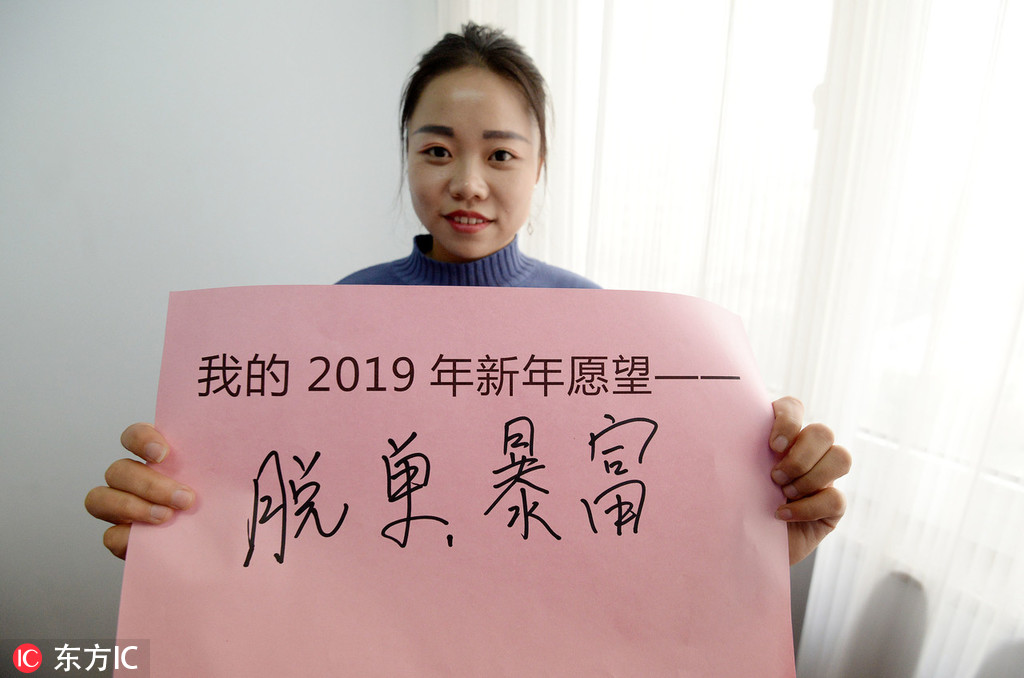 我的 2019 年新年愿望——
脱单,暴富
IC 东方IC